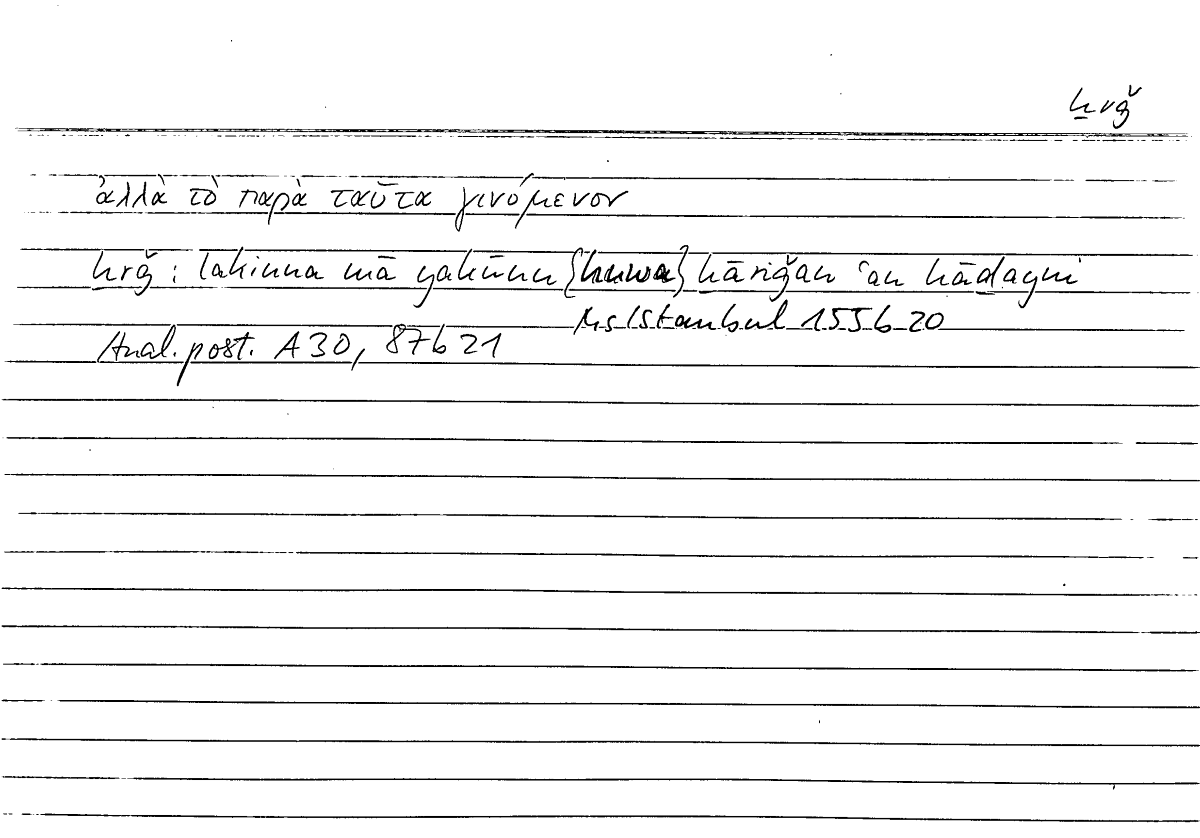 ẖrǧ
ἀλλὰ τὸ παρὰ ταῦτα γινόμενον
ẖrǧ : lakinna mā yakūnu {huwa} ẖāriǧan ʿan hāḏayni
Ms Istanbul 155b20
Anal. post. A 30, 87b21